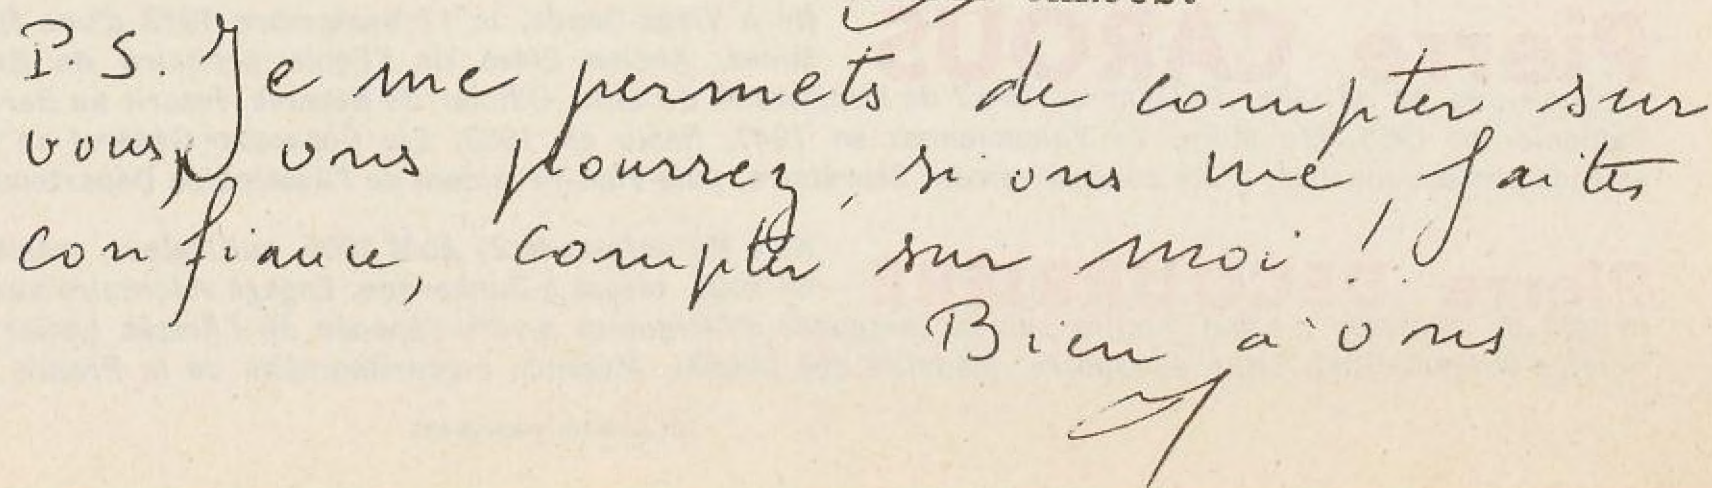 P.S. Je me permets de compter sur
vous, vous pourrez, si vous me faites
confiance, compter sur moi !
Bien à vous